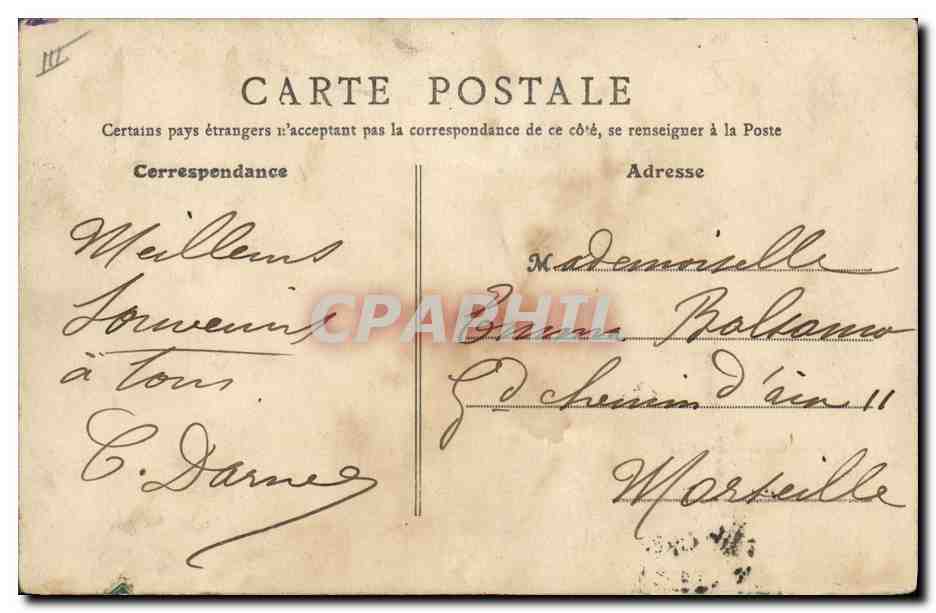 III
CARTE POSTALE
Certains pays étrangers n'acceptant pas la correspondance de ce côté, se renseigner à la Poste
Correspondance
Meilleurs
Souvenirs
à tous
C. Darne
Adresse
Mademoiselle
Emma Balsamo
Gd chemin d'aix 11
Marseille
CPAPHIL